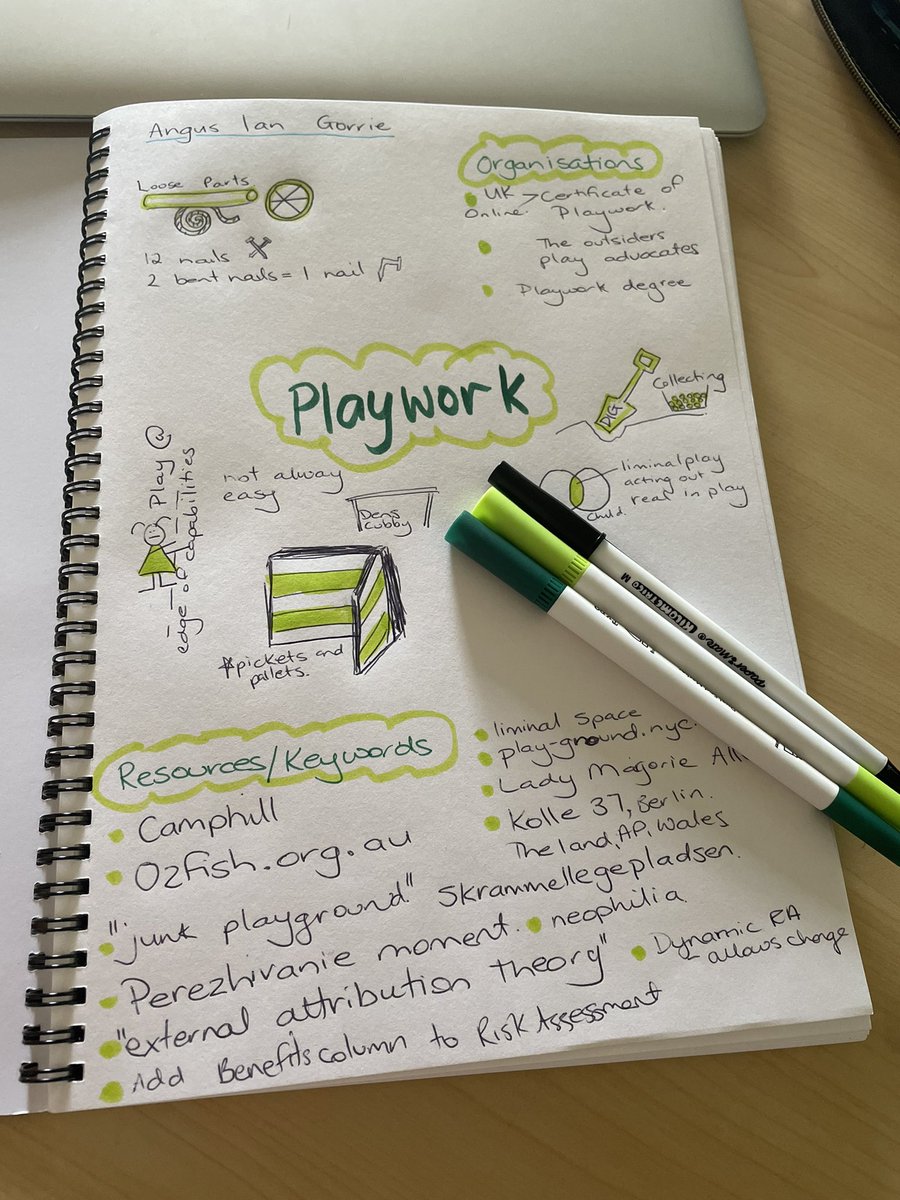 Angus Ian Gorrie
Loose Parts
12 nails
2 bent nails = 1 nail
Organisations
UK > Certificate of
Online. Playwork.
The outsiders
play advocates
Playwork degree
Playwork
DIG
Collecting
Play @
edge of capabilities
not alway
easy
Dens
cubby
liminal play
acting out
real in play
Child.
*pickets and
pallets.
Resources/Keywords
Camphill
Ozfish.org.au
"junk playground" Skrammellegepladsen.
Perezhivanie moment.
neophilia
"external attribution theory"
Dynamic RA
– allows change
Add Benefits column to Risk Assessment
liminal space
play-ground.nyc.
Lady Majorie
Kolle 37, Berlin.
The land, AP, Wales
PAPER MATE KILOMETRICO M